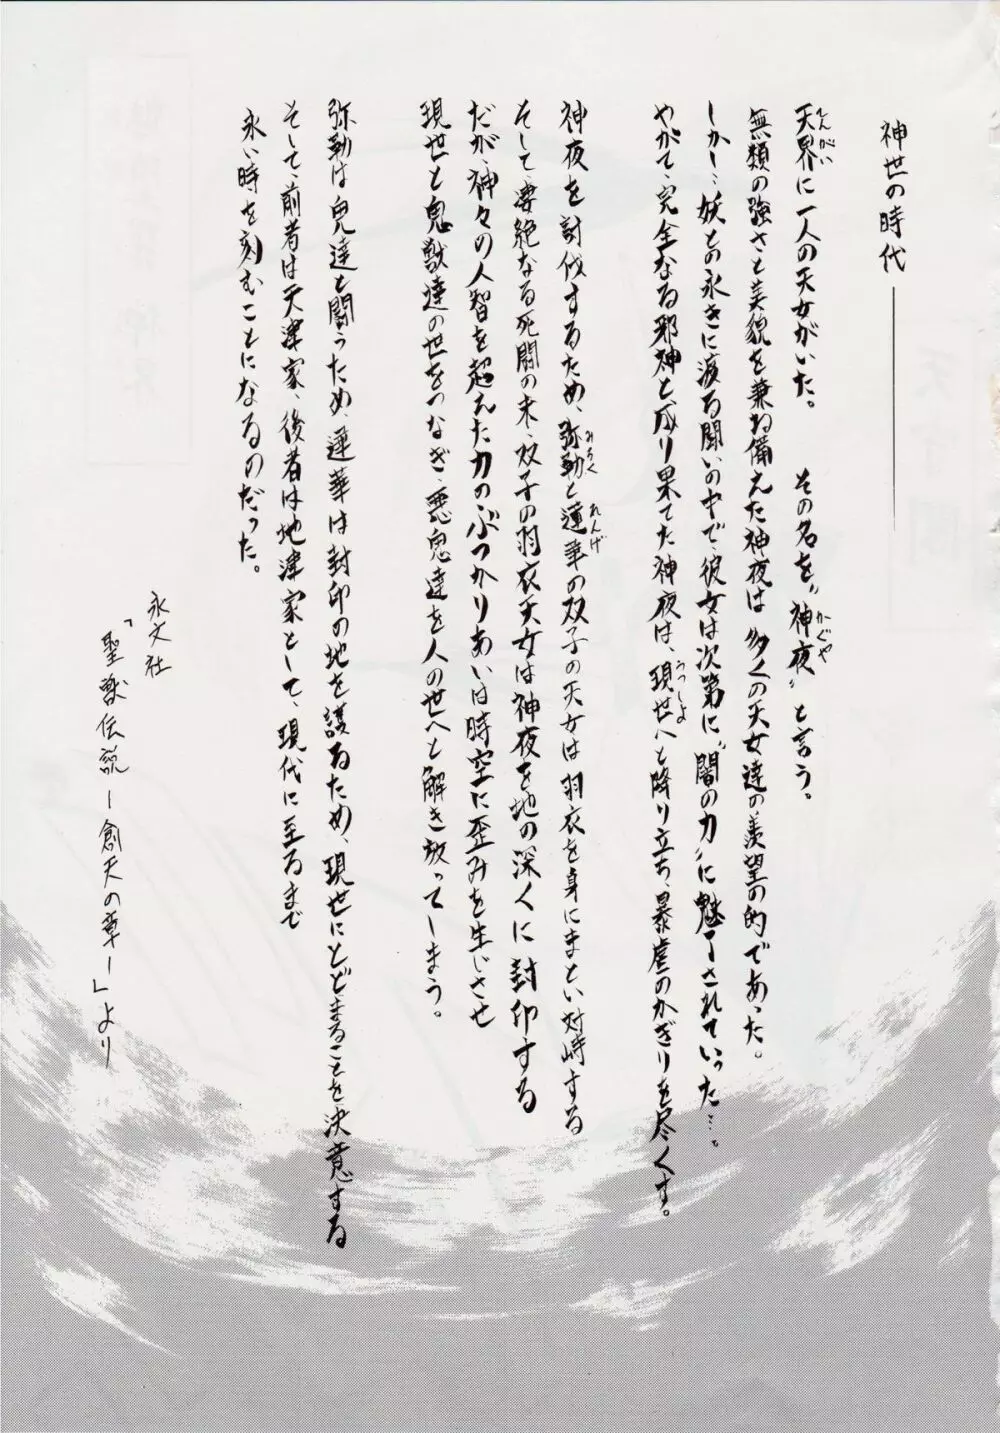 神世の時代 ―――――
天界に一人の天女がいた。 その名を〝神夜〟と言う。
無類の強さと美貌を兼ね備えた神夜は多くの天女達の羨望の的であった。
しかし…妖との永きに渡る闘いの中で、彼女は次第に〝闇の力〟に魅了されていった…。
やがて、完全なる邪神と成り果てた神夜は、現世へと降り立ち、暴虐のかぎりを尽くす。
神夜を討伐するため、弥勒と蓮華の双子の天女は羽衣を身にまとい対峙する
そして、凄絶なる死闘の末、双子の羽衣天女は神夜を地の深くに封印する
だが、神々の人智を超えた力のぶつかりあいは時空に歪みを生じさせ
現世と鬼獣達の世をつなぎ、悪鬼達を人の世へと解き放ってしまう。
弥勒は鬼達と闘うため、蓮華は封印の地を護るため、現世にとどまることを決意する
そして、前者は天津家、後者は地津家として、現代に至るまで
永い時を刻むことになるのだった。
永文社
「聖獣伝説ー創天の章ー」より